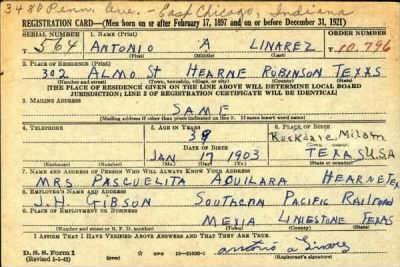 3480 Penn. Ave. - East Chicago, Indiana
REGISTRATION CARD—(Men born on or after February 17, 1897 and on or before December 31, 1921)
SERIAL NUMBER 1. NAME (Print) ORDER NUMBER
T 564 ANTONIO A LINAREZ T 10.796
(First) (Middle) (Last)
2. PLACE OF RESIDENCE (Print)
302 ALMO St HEARNE ROBINSON TEXAS
(Number and street) (Town, township, village, or city) (County) (State)
[THE PLACE OF RESIDENCE GIVEN ON THE LINE ABOVE WILL DETERMINE LOCAL BOARD
JURISDICTION; LINE 2 OF REGISTRATION CERTIFICATE WILL BE IDENTICAL]
3. MAILING ADDRESS
SAME
[Mailing address if other than place indicated on line 2. If same insert word same]
4. TELEPHONE 5. AGE IN YEARS 6. PLACE OF BIRTH
39 Rockdale Milam
DATE OF BIRTH (Town or county)
JAN 17 1903 TEXAS USA
(Exchange) (Number) (Mo.) (Day) (Yr.) (State or country)
7. NAME AND ADDRESS OF PERSON WHO WILL ALWAYS KNOW YOUR ADDRESS
MRS PASCUELITA AQUILARA HEARNE TEX
8. EMPLOYER'S NAME AND ADDRESS
J.H. GIBSON SOUTHERN PACIFIC RAILROAD
9. PLACE OF EMPLOYMENT OR BUSINESS
MEXIA LIMESTONE TEXAS
(Number and street or R. F. D. number) (Town) (County) (State)
I AFFIRM THAT I HAVE VERIFIED ABOVE ANSWERS AND THAT THEY ARE TRUE.
D. S. S. Form 1 Antonio A Linarez
(Revised 1-1-42) (over) GPO 16-21630-1 (Registrant's signature)